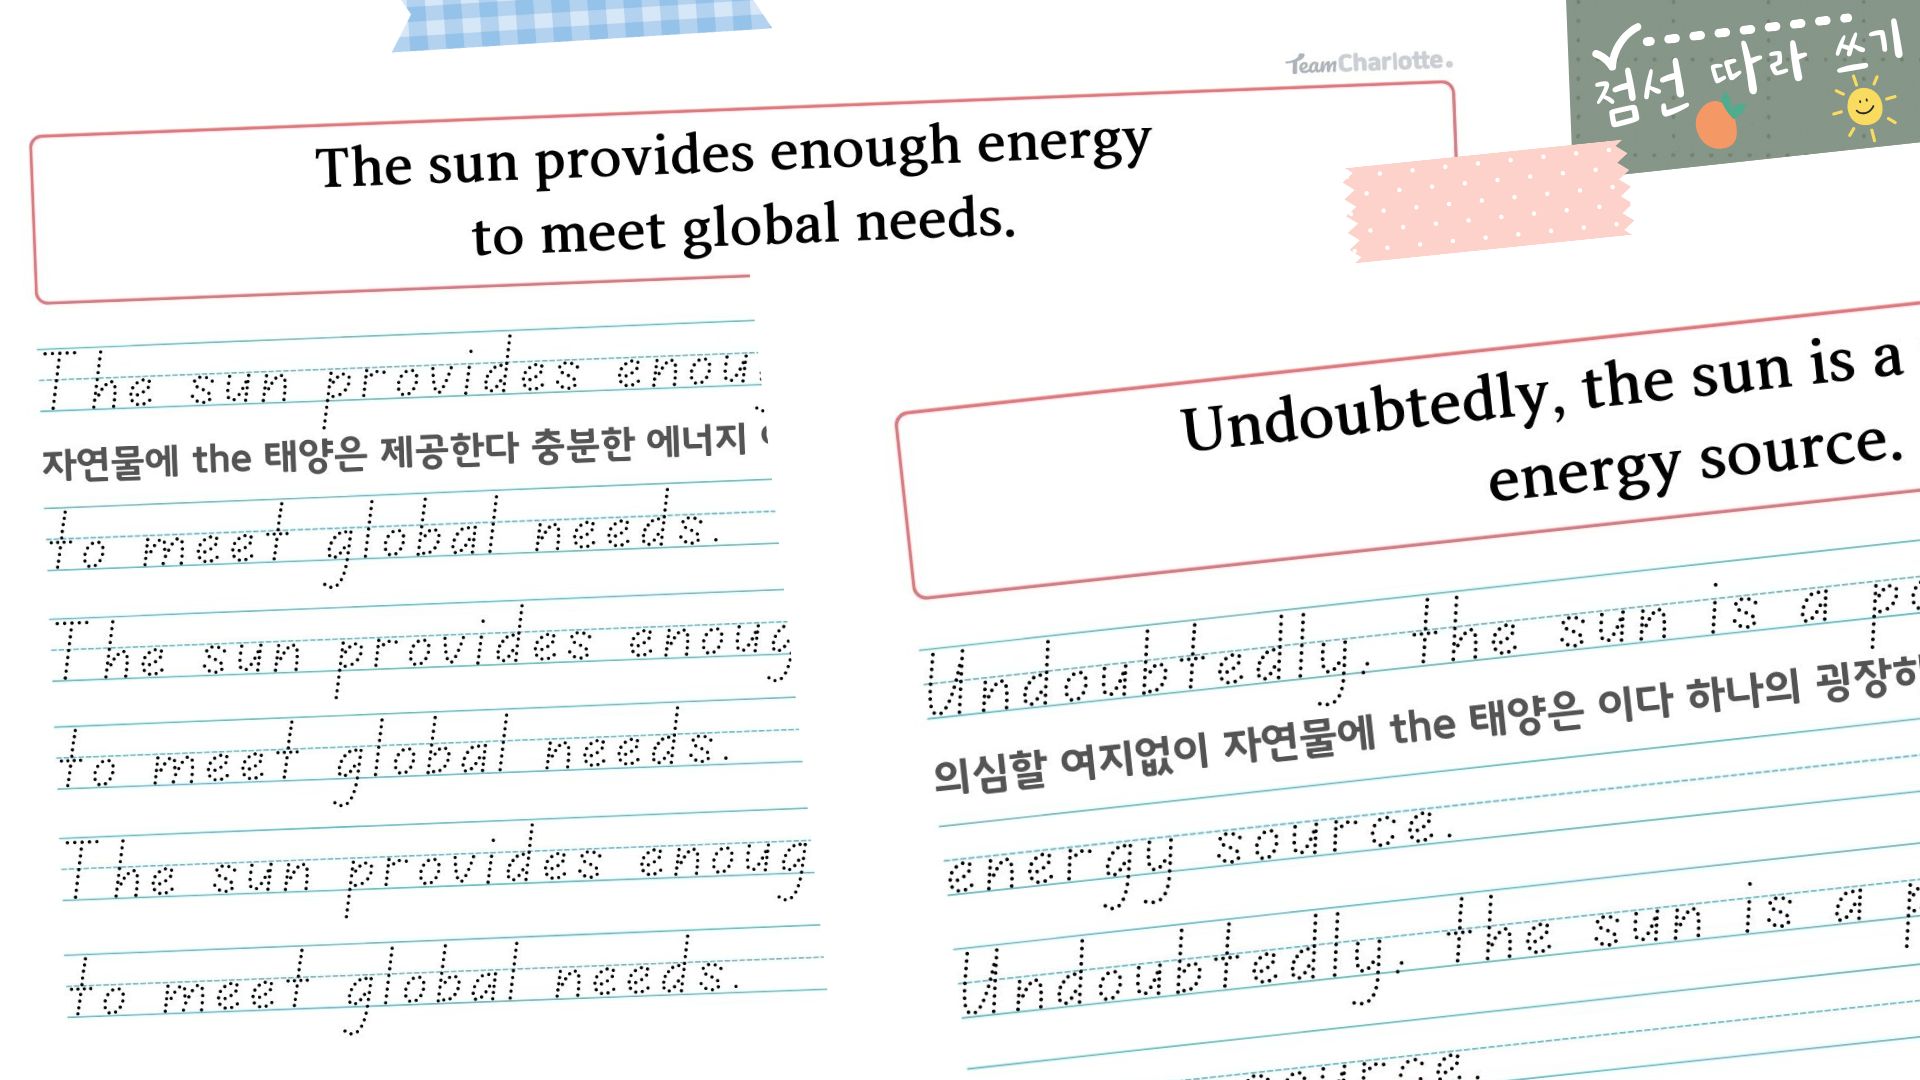 TeamCharlotte.
점선 따라 쓰기
The sun provides enough energy
to meet global needs.
The sun provides
자연물에 the 태양은 제공한다 충분한 에너지
to meet global needs.
The sun provides enoug
to meet global needs.
The sun provides enoug
to meet global needs.
Undoubtedly, the sun is a
energy source.
Undoubtedly, the sun is a
의심할 여지없이 자연물에 the 태양은 이다 하나의
energy source.
Undoubtedly, the sun is a